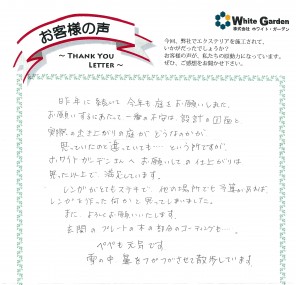 お客様の声
～ THANK YOU
LETTER ～
White Garden
株式会社 ホワイト・ガーデン
今回、弊社でエクステリアを施工されて、
いかがだったでしょうか？
お客様の声が、私たちの原動力になっています。
ぜひ、ご感想をお聞かせ下さい。
昨年に続いて 今年も庭をお願いしました。
お願いするにあたって 一番の不安は、設計の図面と
実際の出き上がりの庭が どうなのかが
思っていたのと違っていても… という所ですが、
ホワイトガーデンさんへお願いしての仕上がりは
思った以上で、満足しています。
レンガがとてもステキで、他の場所でも予算があれば、
レンガを作った何かと思ってしまいました。
また、よろしくお願いいたします。
玄関のプレートの木の部分のコーティングも…
べべも元気です
雪の中 葉をつかつかさせて散歩しています。